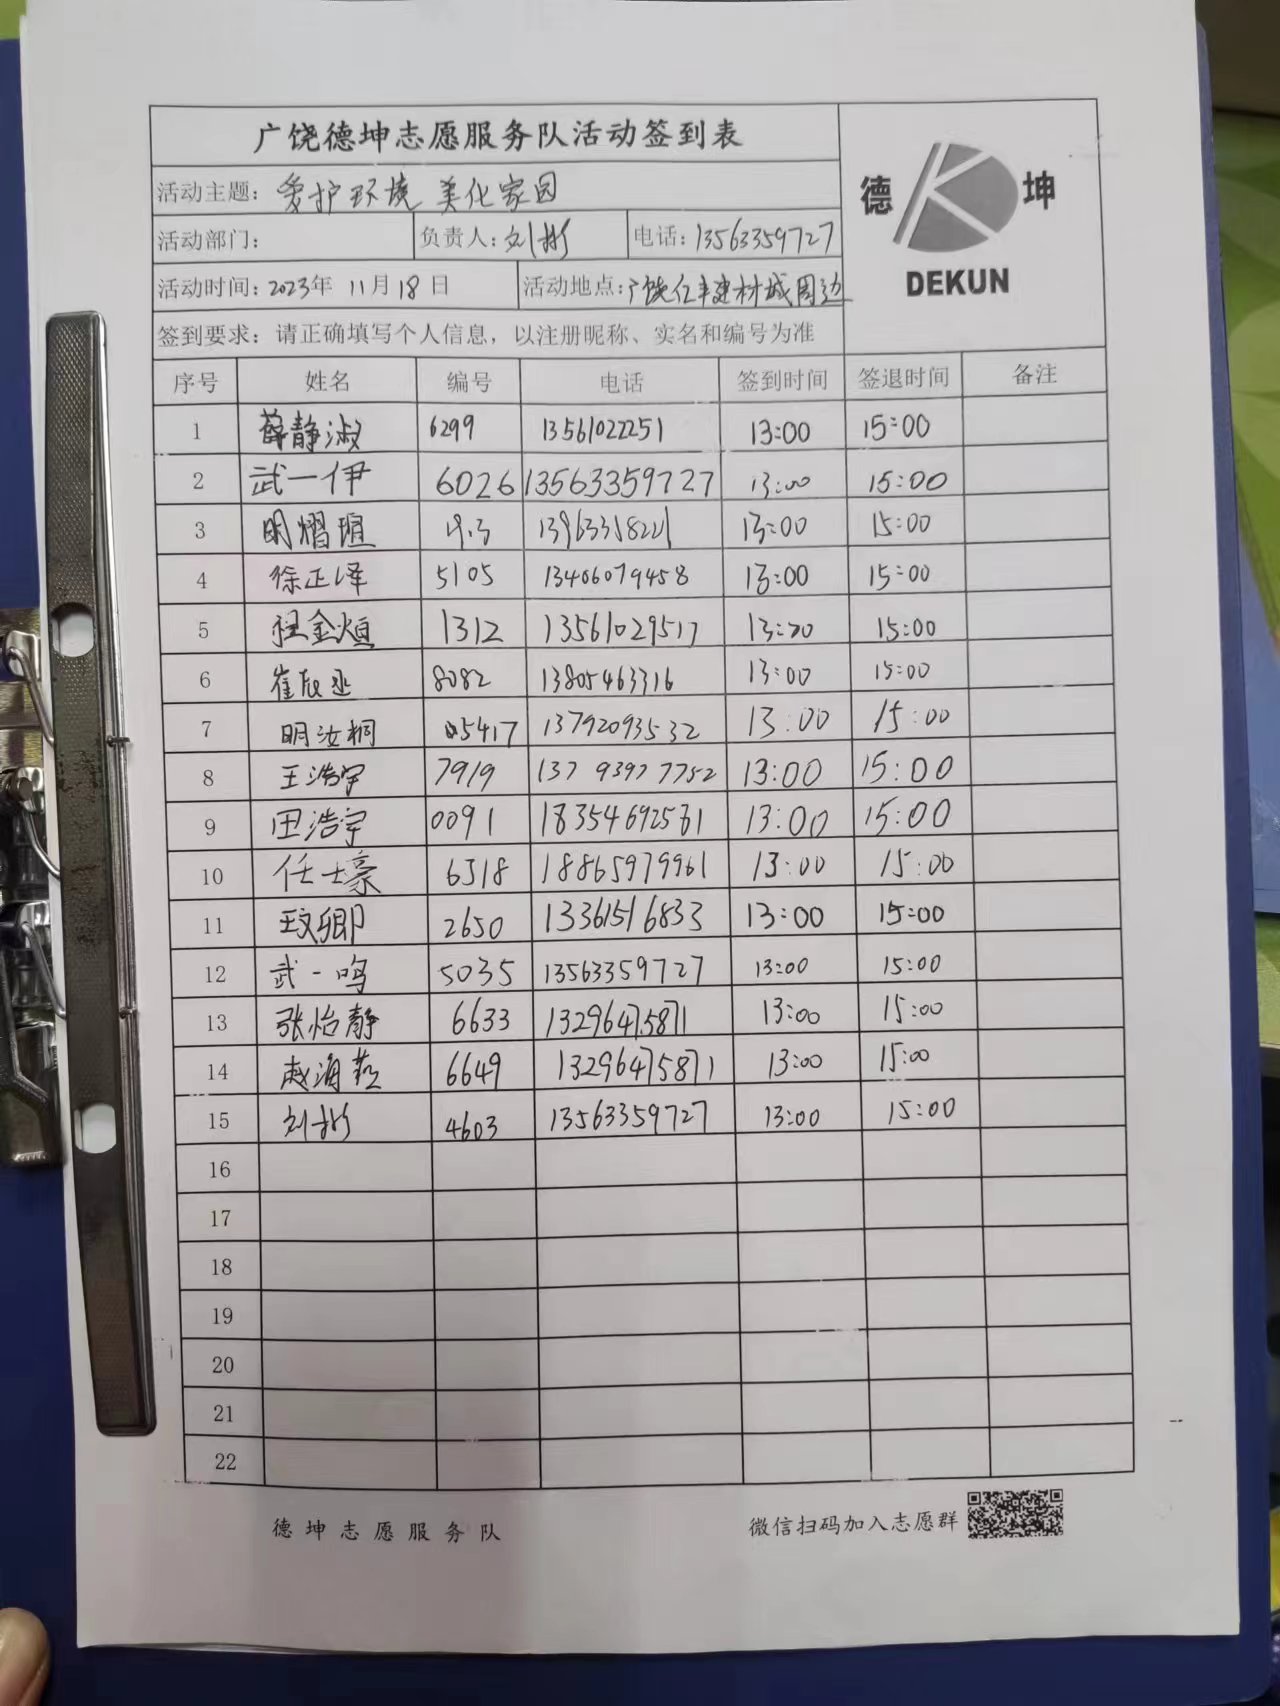 广饶德坤志愿服务队活动签到表
德 坤
DEKUN
活动主题：爱护环境 美化家园
活动部门： 负责人：刘彬 电话：13563359727
活动时间：2023年 11月18日 活动地点：广饶亿丰建材城周边
签到要求：请正确填写个人信息，以注册昵称、实名和编号为准
序号 姓名 编号 电话 签到时间 签退时间 备注
1 薛静淑 6299 13561022251 13:00 15:00
2 武一伊 6026 13563359727 13:00 15:00
3 明熠瑄 13:00 15:00
4 徐正泽 5105 13406079458 13:00 15:00
5 1312 13561029517 15:00
6 8082 13805463316 13:00 15:00
7 明汝桐 05417 13792093532 13:00 15:00
8 王浩宇 7919 137 9397 7752 13:00 15:00
9 田浩宇 0091 13:00 15:00
10 任士豪 18865979961 13:00 15:00
11 2650 13361516833 13:00 15:00
12 武一鸣 5035 13563359727 13:00 15:00
13 张怡静 6633 13296475871 13:00 15:00
14 6649 13296475871 13:00 15:00
15 刘彬 4603 13563359727 13:00 15:00
16
17
18
19
20
21
22
德坤志愿服务队
微信扫码加入志愿群